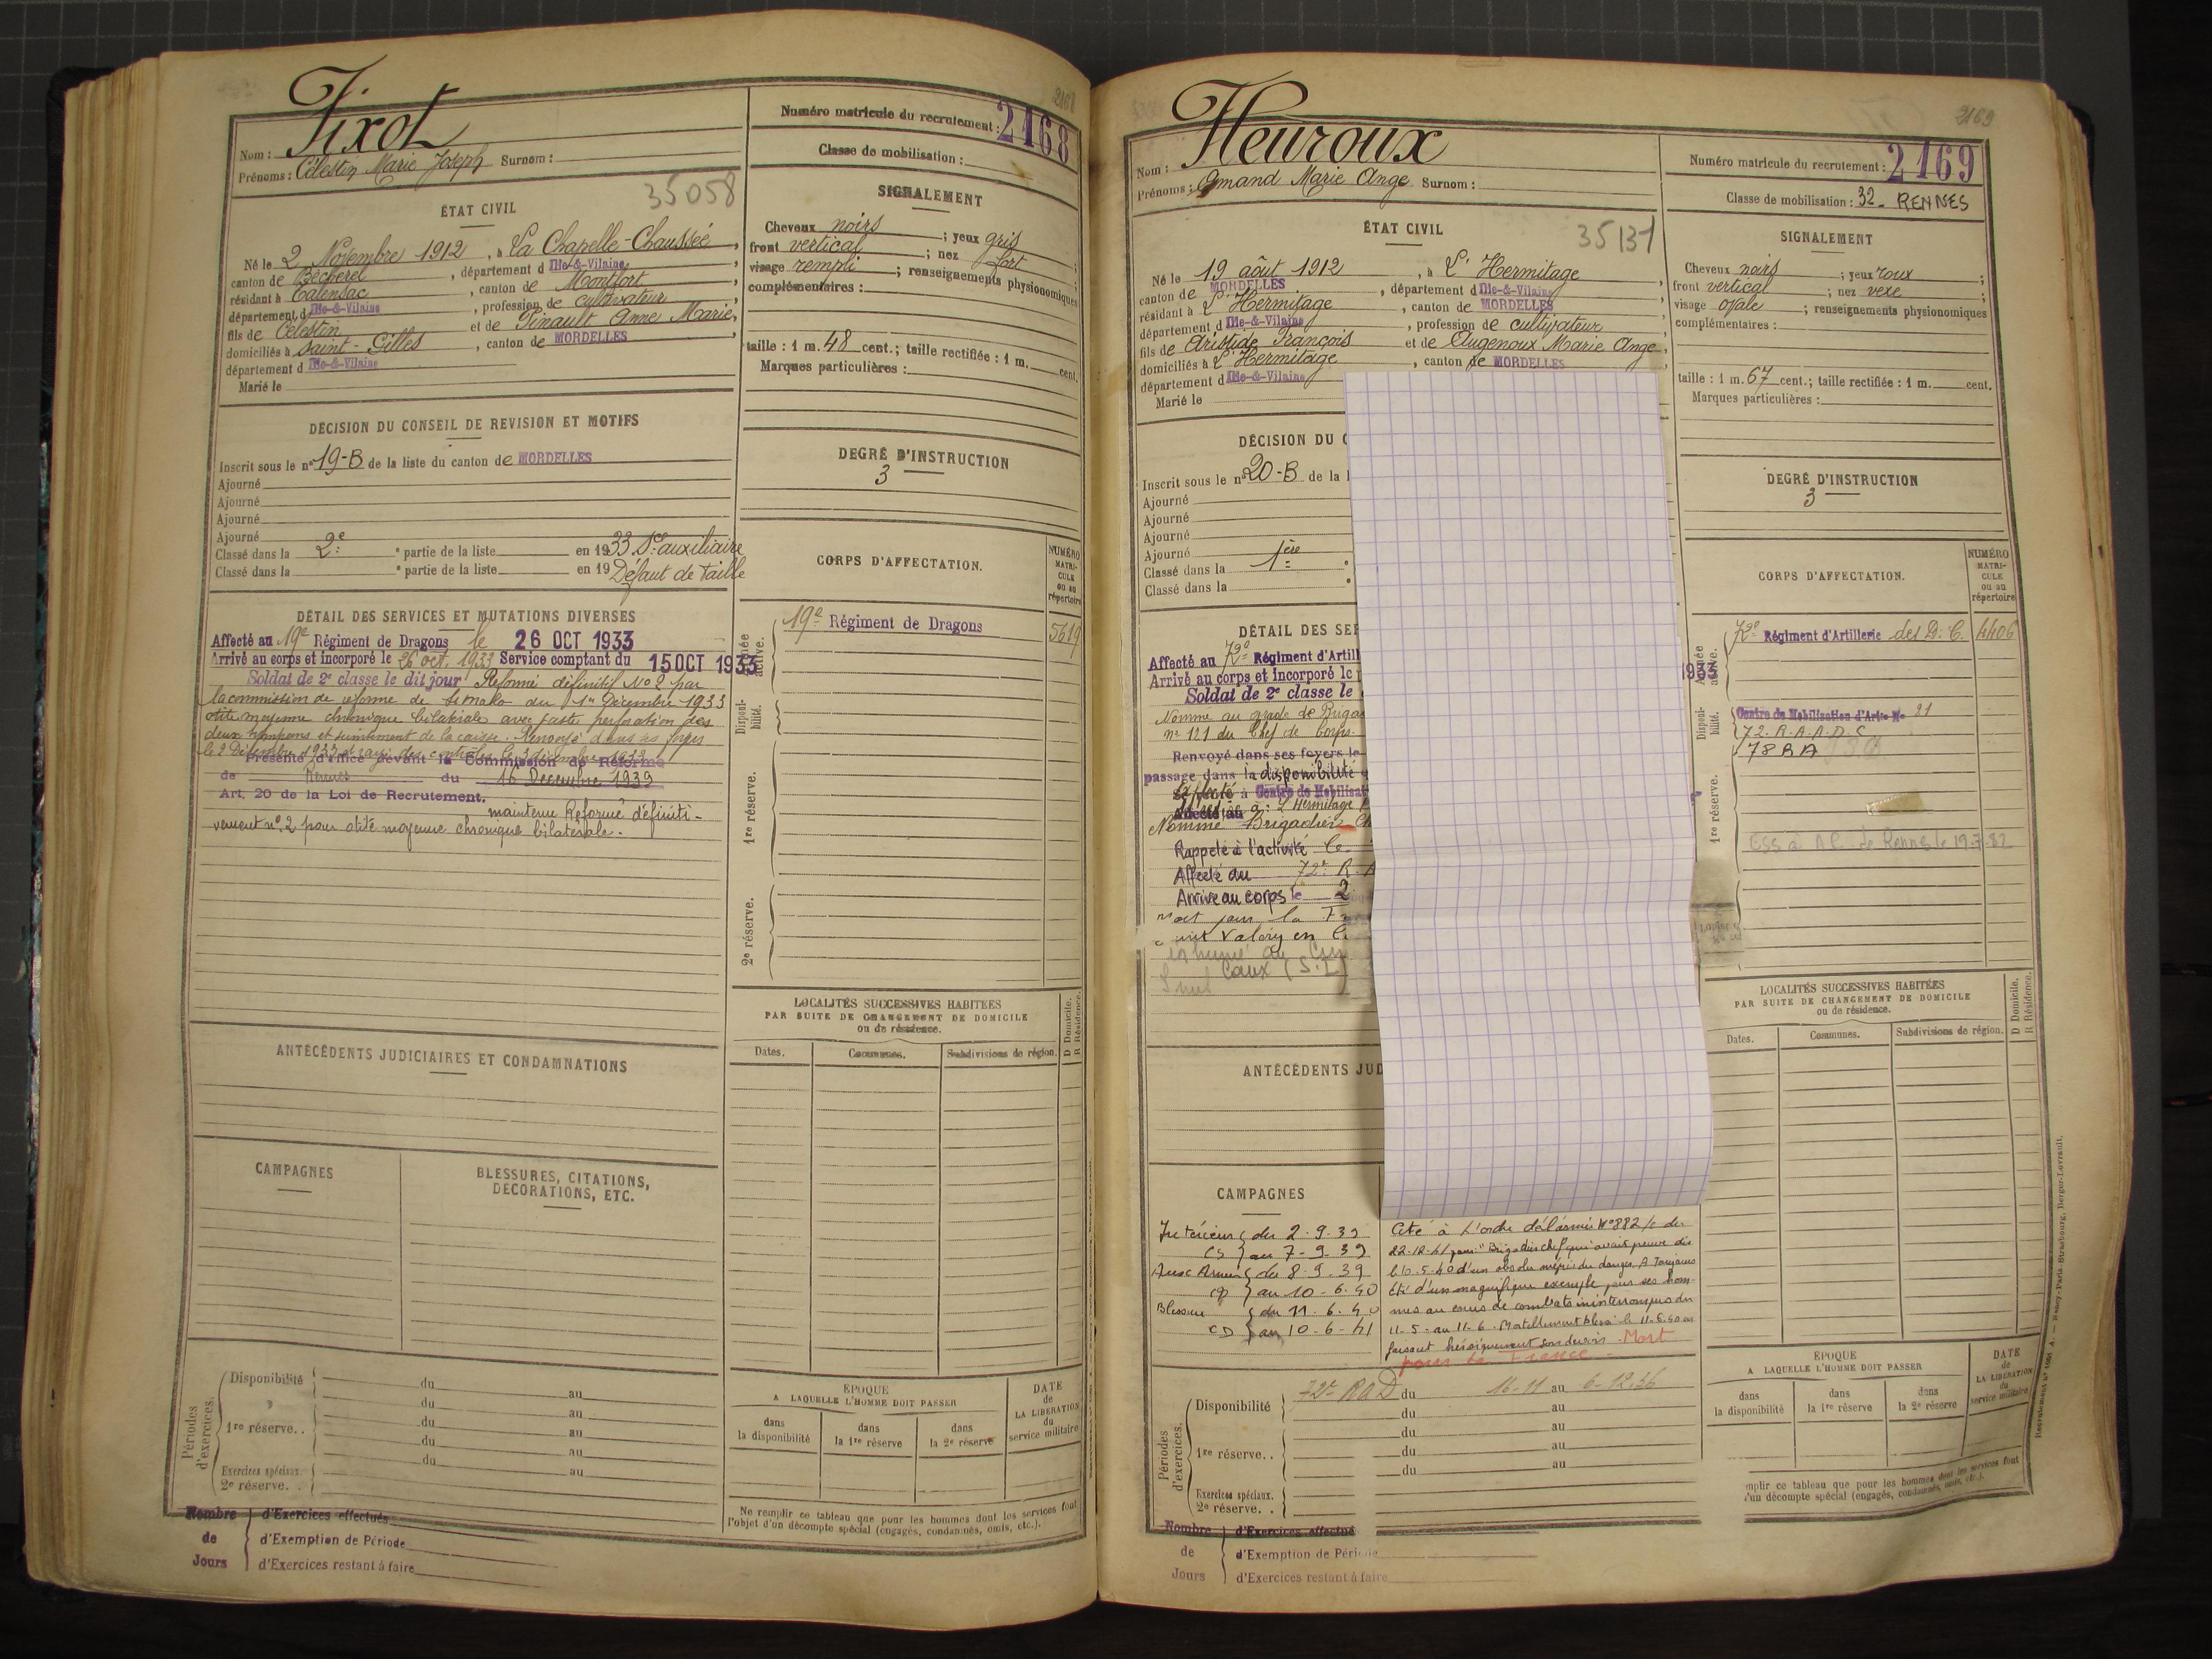 2168
Tixot
Nom :
Prénoms : Célestin Marie Joseph Surnom :
Numéro matricule du recrutement : 2168
Classe de mobilisation :
35058
ÉTAT CIVIL
Né le 2 Novembre 1912, à La Chapelle-Chaussée,
canton de Bécherel, département d Ille-&-Vilaine,
résidant à Talensac, canton de Montfort
département d Ille-&-Vilaine, profession de cultivateur,
fils de Célestin et de Pinault Anne Marie,
domiciliés à Saint-Gilles, canton de MORDELLES,
département d Ille-&-Vilaine
Marié le
SIGNALEMENT
Cheveux noirs ; yeux gris ;
front vertical ; nez fort ;
visage rempli ; renseignements physionomiques
complémentaires :
taille : 1 m. 48 cent.; taille rectifiée : 1 m. cent.
Marques particulières :
DÉCISION DU CONSEIL DE REVISION ET MOTIFS
Inscrit sous le n° 19-B de la liste du canton de MORDELLES
Ajourné
Ajourné
Ajourné
Ajourné
Classé dans la 2e partie de la liste en 1933 Sce auxiliaire
Classé dans la partie de la liste en 19 Défaut de taille
DEGRÉ D'INSTRUCTION
3
DÉTAIL DES SERVICES ET MUTATIONS DIVERSES
Affecté au 19e Régiment de Dragons le 26 OCT 1933
Arrivé au corps et incorporé le 26 oct. 1933 Service comptant du 15 OCT 1933
Soldat de 2e classe le dit jour Réformé définitif No 2 par
la commission de réforme de du 1er Décembre 1933
otite moyenne chronique bilatérale avec vaste perforation des
deux tympans et suintement de la caisse. Renvoyé dans ses foyers
le 2 Décembre 1933 et rayé des contrôles le 3 décembre 1933
Présenté d'office devant la Commission de Réforme
de Rennes du 16 Decembre 1939
Art. 20 de la Loi de Recrutement.
maintenu Réformé définiti-
vement n°2 pour otite moyenne chronique bilatérale.
CORPS D'AFFECTATION.
NUMÉRO MATRI-CULE ou au répertoire
Armée active.
19e Régiment de Dragons 5619
Disponi-bilité.
1re réserve.
2e réserve.
LOCALITÉS SUCCESSIVES HABITÉES
PAR SUITE DE CHANGEMENT DE DOMICILE
ou de résidence.
D Domicile.
R Résidence.
Dates. Communes. Subdivisions de région.
ANTÉCÉDENTS JUDICIAIRES ET CONDAMNATIONS
CAMPAGNES
BLESSURES, CITATIONS,
DÉCORATIONS, ETC.
Périodes d'exercices.
Disponibilité du au
du au
1re réserve.. du au
du au
du au
Exercices spéciaux.
2e réserve. . au
ÉPOQUE
A LAQUELLE L'HOMME DOIT PASSER
dans la disponibilité
dans la 1re réserve
dans la 2e réserve
DATE de LA LIBÉRATION du service militaire
Ne remplir ce tableau que pour les hommes dont les services font
l'objet d'un décompte spécial (engagés, condamnés, omis, etc.).
Nombre de Jours
d'Exercices effectués
d'Exemption de Période
d'Exercices restant à faire
2169
Heuroux
Nom :
Prénoms : Amand Marie Ange Surnom :
Numéro matricule du recrutement : 2169
Classe de mobilisation : 32 - RENNES
35131
ÉTAT CIVIL
Né le 19 août 1912, à L'Hermitage,
canton de MORDELLES, département d Ille-&-Vilaine
résidant à L'Hermitage, canton de MORDELLES
département d Ille-&-Vilaine, profession de cultivateur
fils de Aristide François et de Augenoux Marie Ange,
domiciliés à L'Hermitage, canton de MORDELLES
département d Ille-&-Vilaine
Marié le
SIGNALEMENT
Cheveux noirs ; yeux roux ;
front vertical ; nez vexe ;
visage ovale ; renseignements physionomiques
complémentaires :
taille : 1 m. 67 cent.; taille rectifiée : 1 m. cent.
Marques particulières :
DÉCISION DU C
Inscrit sous le n° 20-B de la l
Ajourné
Ajourné
Ajourné
Ajourné
Classé dans la 1ère
Classé dans la
DEGRÉ D'INSTRUCTION
3
DÉTAIL DES SER
Affecté au 72e Régiment d'Artill
Arrivé au corps et incorporé le 1933
Soldat de 2e classe le
Nommé au grade de Brigad
n° 121 du Chef de Corps.
Renvoyé dans ses foyers le
passage dans la disponibilité
Centre de Mobilisat
à : L'Hermitage
Affecté au
Nommé Brigadier Ch
Rappelé à l'activité le
Affecté au 72e R.A
Arrivé au corps le 2
Mort pour la Fr
Valery en C
Caux (S.I
CORPS D'AFFECTATION.
NUMÉRO MATRI-CULE ou au répertoire
Armée active.
72e Régiment d'Artillerie des D.C. 4406
Disponi-bilité.
Centre de Mobilisation d'Artie No 21
72. R.A.A.D.C
78 BA
1re réserve.
de Rennes le 19.7.32
LOCALITÉS SUCCESSIVES HABITÉES
PAR SUITE DE CHANGEMENT DE DOMICILE
ou de résidence.
D Domicile.
R Résidence.
Dates. Communes. Subdivisions de région.
ANTÉCÉDENTS JUD
CAMPAGNES
Intérieur du 2.9.39
CS au 7-9-39
Aux Armées du 8.9.39
CD au 10-6.40
Blessure du 11.6.40
CD au 10-6-41
Cité à l'ordre de l'armée N°882/c du
22-12-41 pour "Brigadier chef qui avait preuve dès
le 10-5-40 d'un absolu mépris du danger. A Toujours
été d'un magnifique exemple pour ses hom-
mes au cours de combats ininterrompus du
11-5- au 11-6. Mortellement blessé le 11-6.40 en
faisant héroïquement son devoir. Mort
pour la France -
Périodes d'exercices.
Disponibilité 72e RAD du 16-11 au 6-12.36
du au
du au
1re réserve.. du au
du au
Exercices spéciaux.
2e réserve. .
ÉPOQUE
A LAQUELLE L'HOMME DOIT PASSER
dans la disponibilité
dans la 1re réserve
dans la 2e réserve
DATE de LA LIBÉRATION du service militaire
mplir ce tableau que pour les hommes dont les services font
d'un décompte spécial (engagés, condamnés, omis, etc.).
Nombre de Jours
d'Exercices effectué
d'Exemption de Période
d'Exercices restant à faire